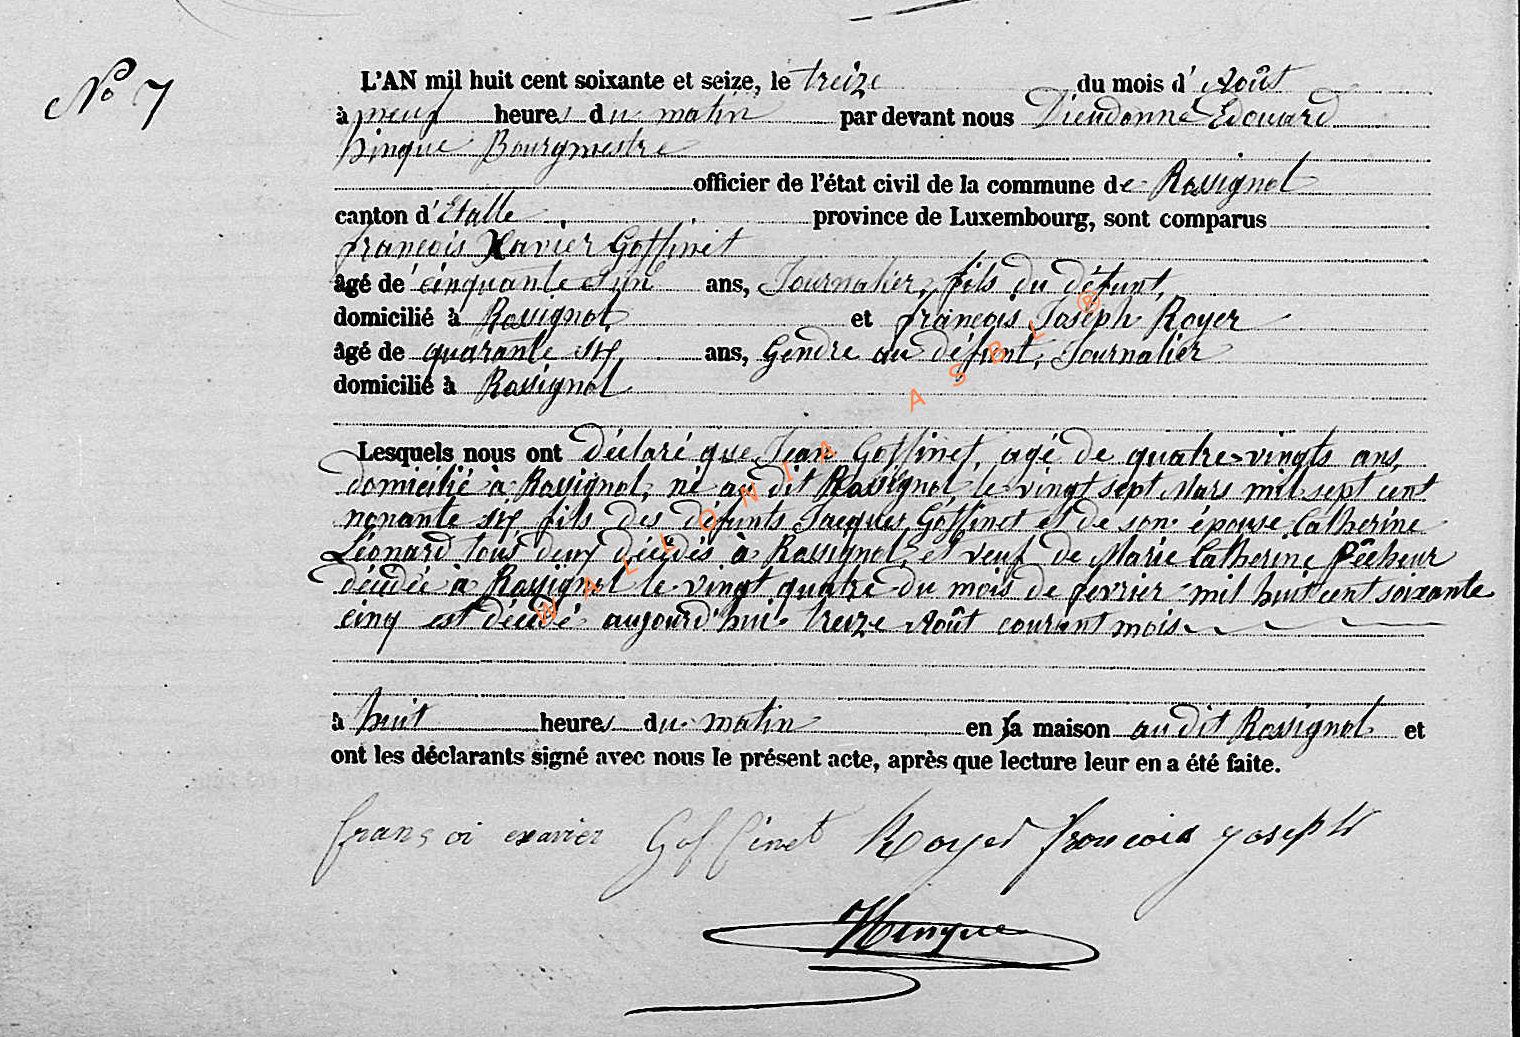 No 7
L'AN mil huit cent soixante et seize, le treize du mois d'Août
à neuf heures du matin par devant nous Dieudonné Edouard
hinque Bourgmestre
officier de l'état civil de la commune de Rossignol
canton d'Etalle province de Luxembourg, sont comparus
françois Xavier Goffinet
âgé de cinquante et un ans, Journalier, fils du défunt,
domicilié à Rossignol, et françois Joseph Royer
âgé de quarante six ans, Gendre au défunt, Journalier
domicilié à Rossignol
Lesquels nous ont Déclaré que Jean Goffinet, agé de quatre-vingts ans,
domicilié à Rossignol, né au dit Rossignol, le vingt sept Mars mil sept cent
nonante six fils des défunts Jacques Goffinet et de son épouse Catherine
Léonard tous deux décédés à Rossignol, et veuf de Marie Catherine Pêcheur
décédée à Rossignol le vingt quatre du mois de fevrier mil huit cent soixante
cinq est décédé aujourd'hui treize Août courant mois
à huit heures du matin en sa maison au dit Rossignol et
ont les déclarants signé avec nous le présent acte, après que lecture leur en a été faite.
françoi exavier Goffinet Royer françois joseph
Hinque
WALLONIA ASBL ®